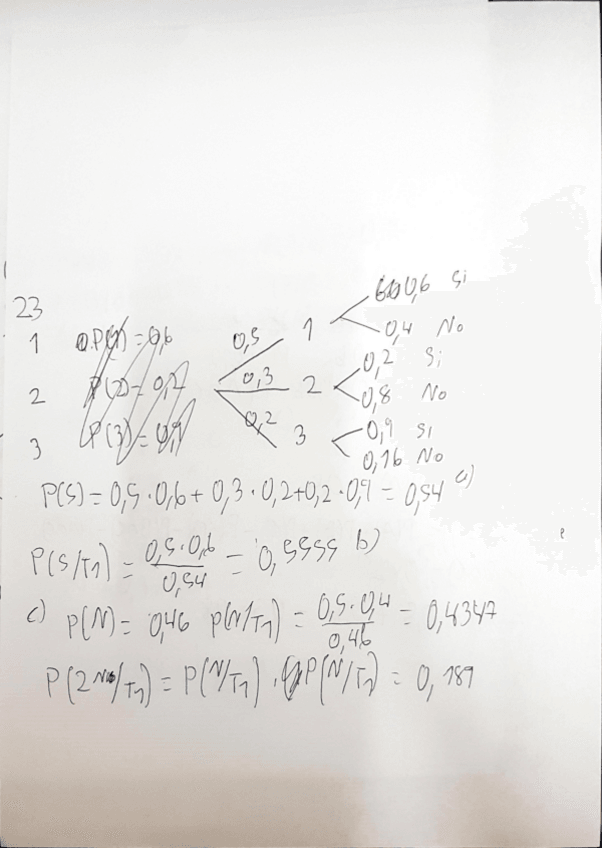 23
1 P(1) = 0,6
2 P(2) = 0,2
3 P(3) = 0,9
0,5 1 0,6 Si
0,4 No
0,3 2 0,2 Si
0,8 No
0,2 3 0,9 Si
0,16 No
P(S) = 0,5 · 0,6 + 0,3 · 0,2 + 0,2 · 0,9 = 0,54 a)
P(S/T1) = 0,5 · 0,6 / 0,54 = 0,5555 b)
c) P(N) = 0,46 P(N/T1) = 0,5 · 0,4 / 0,46 = 0,4347
P(2 No/T1) = P(N/T1) · P(N/T1) = 0,189